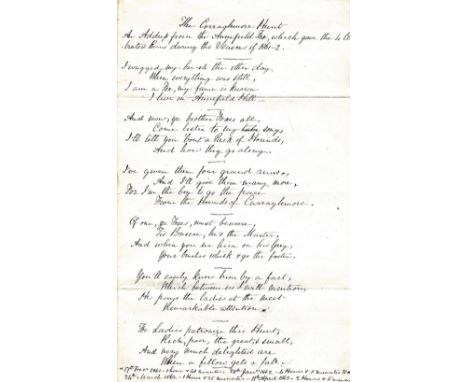 The Curraghmore Hunt
An Address from the Annefield Fox, which gave the 4 Cele
brated Runs during the Season of 1861-2.
I wagged my brush the other day
When everything was still,
I am a Fox, my fame is known
I live on Annefield Hill.
And now, ye brother Foxes all,
Come listen to my song,
I'll tell you 'bout a Pack of Hounds,
And how they go along.
I've given them four grand runs,
And I'll give them many more,
For I'm the boy to go the pace
From the Hounds of Curraghmore.
Of one, ye Foxes, must beware,
Tis Briscoe, he's the Master,
And when you see him on his grey,
Your brushes whisk & go the faster.
You'll easily know him by a fact,
Which between us I will mention,
He pays the ladies at the meet
Remarkable attention.
The Ladies patronize this Hunt,
Rich, poor, the great & small,
And very much delighted are
When a fellow gets a fall.
24th March 1862